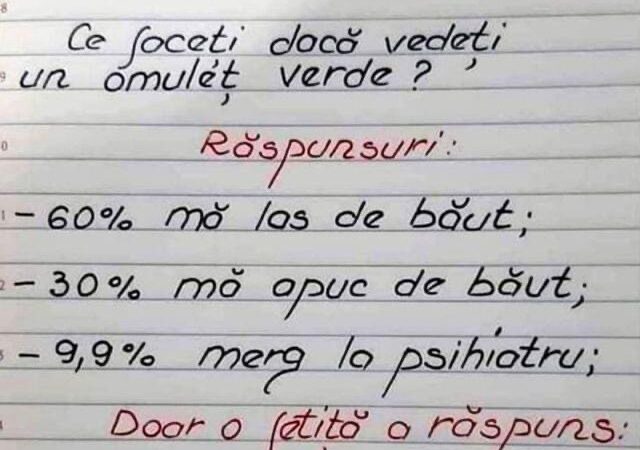 Ce faceți dacă vedeți
un omuleț verde?
Răspunsuri:
- 60% mă las de băut;
- 30% mă apuc de băut;
- 9,9% merg la psihiatru;
Doar o fetiță a răspuns: